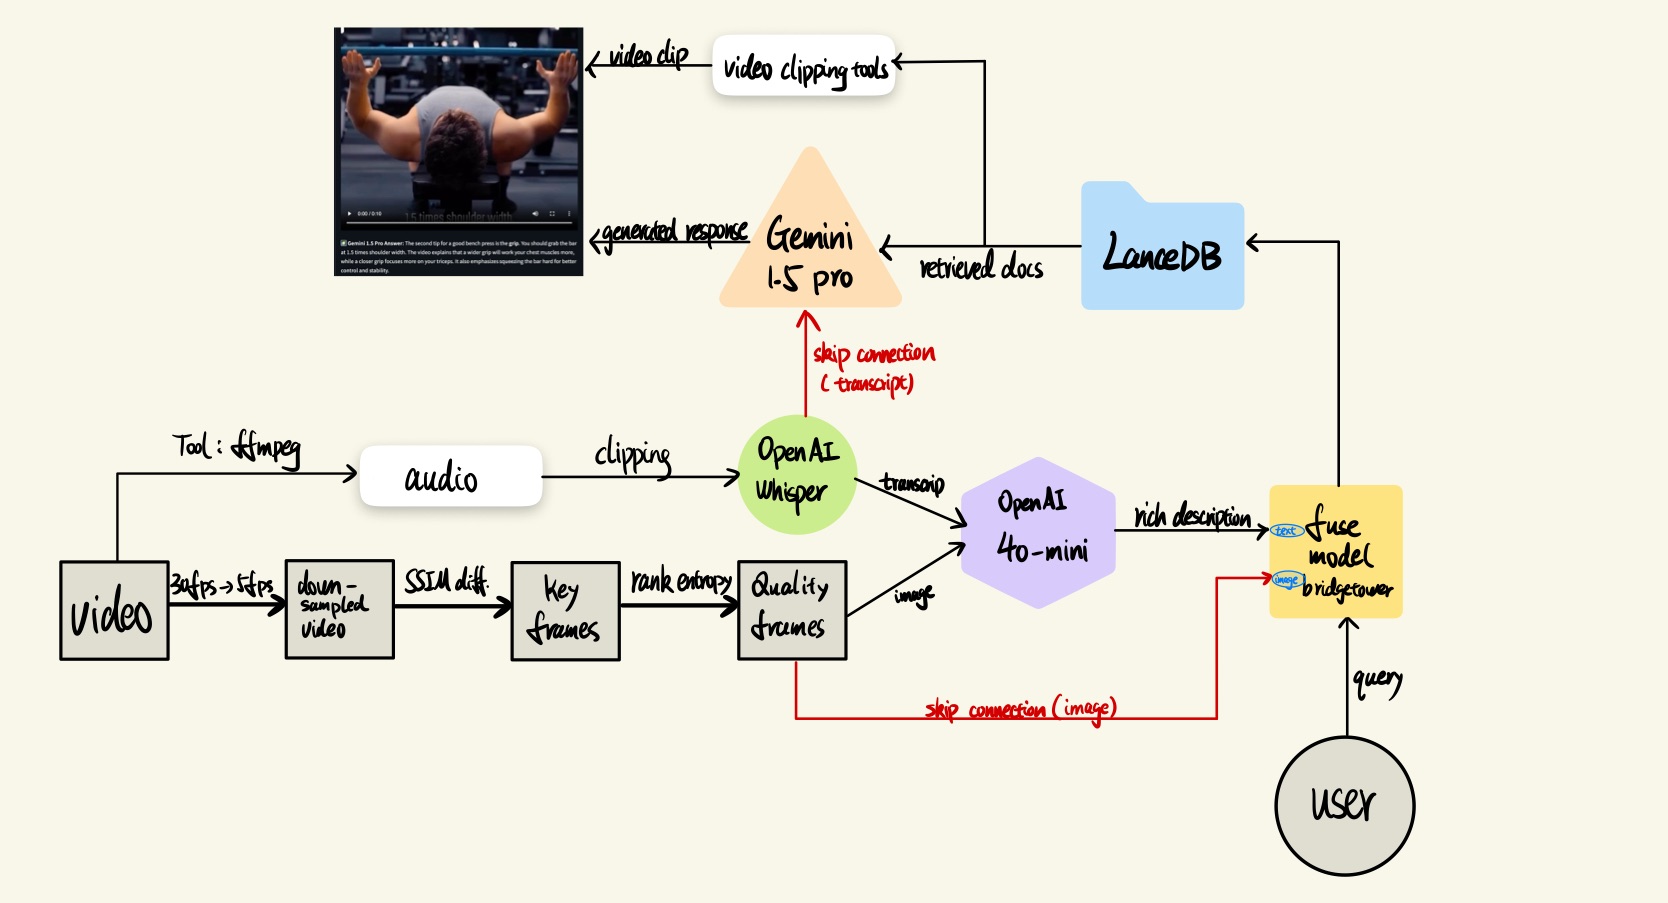 video clip
video clipping tools
1.5 times shoulder width
0:00 / 0:16
Gemini 1.5 Pro Answer: The second tip for a good bench press is the grip. You should grab the bar
at 1.5 times shoulder width. The video explains that a wider grip will work your chest muscles more,
while a closer grip focuses more on your triceps. It also emphasizes squeezing the bar hard for better
control and stability.
generated response
Gemini
1.5 pro
retrieved docs
LanceDB
skip connection
(transcript)
Tool: ffmpeg
audio
clipping
OpenAI
Whisper
transcrip
OpenAI
4o-mini
rich description
text
fuse
model
image
bridgetower
video
30fps→5fps
down-
sampled
video
SSIM diff.
Key
frames
rank entropy
Quality
frames
image
skip connection (image)
query
user